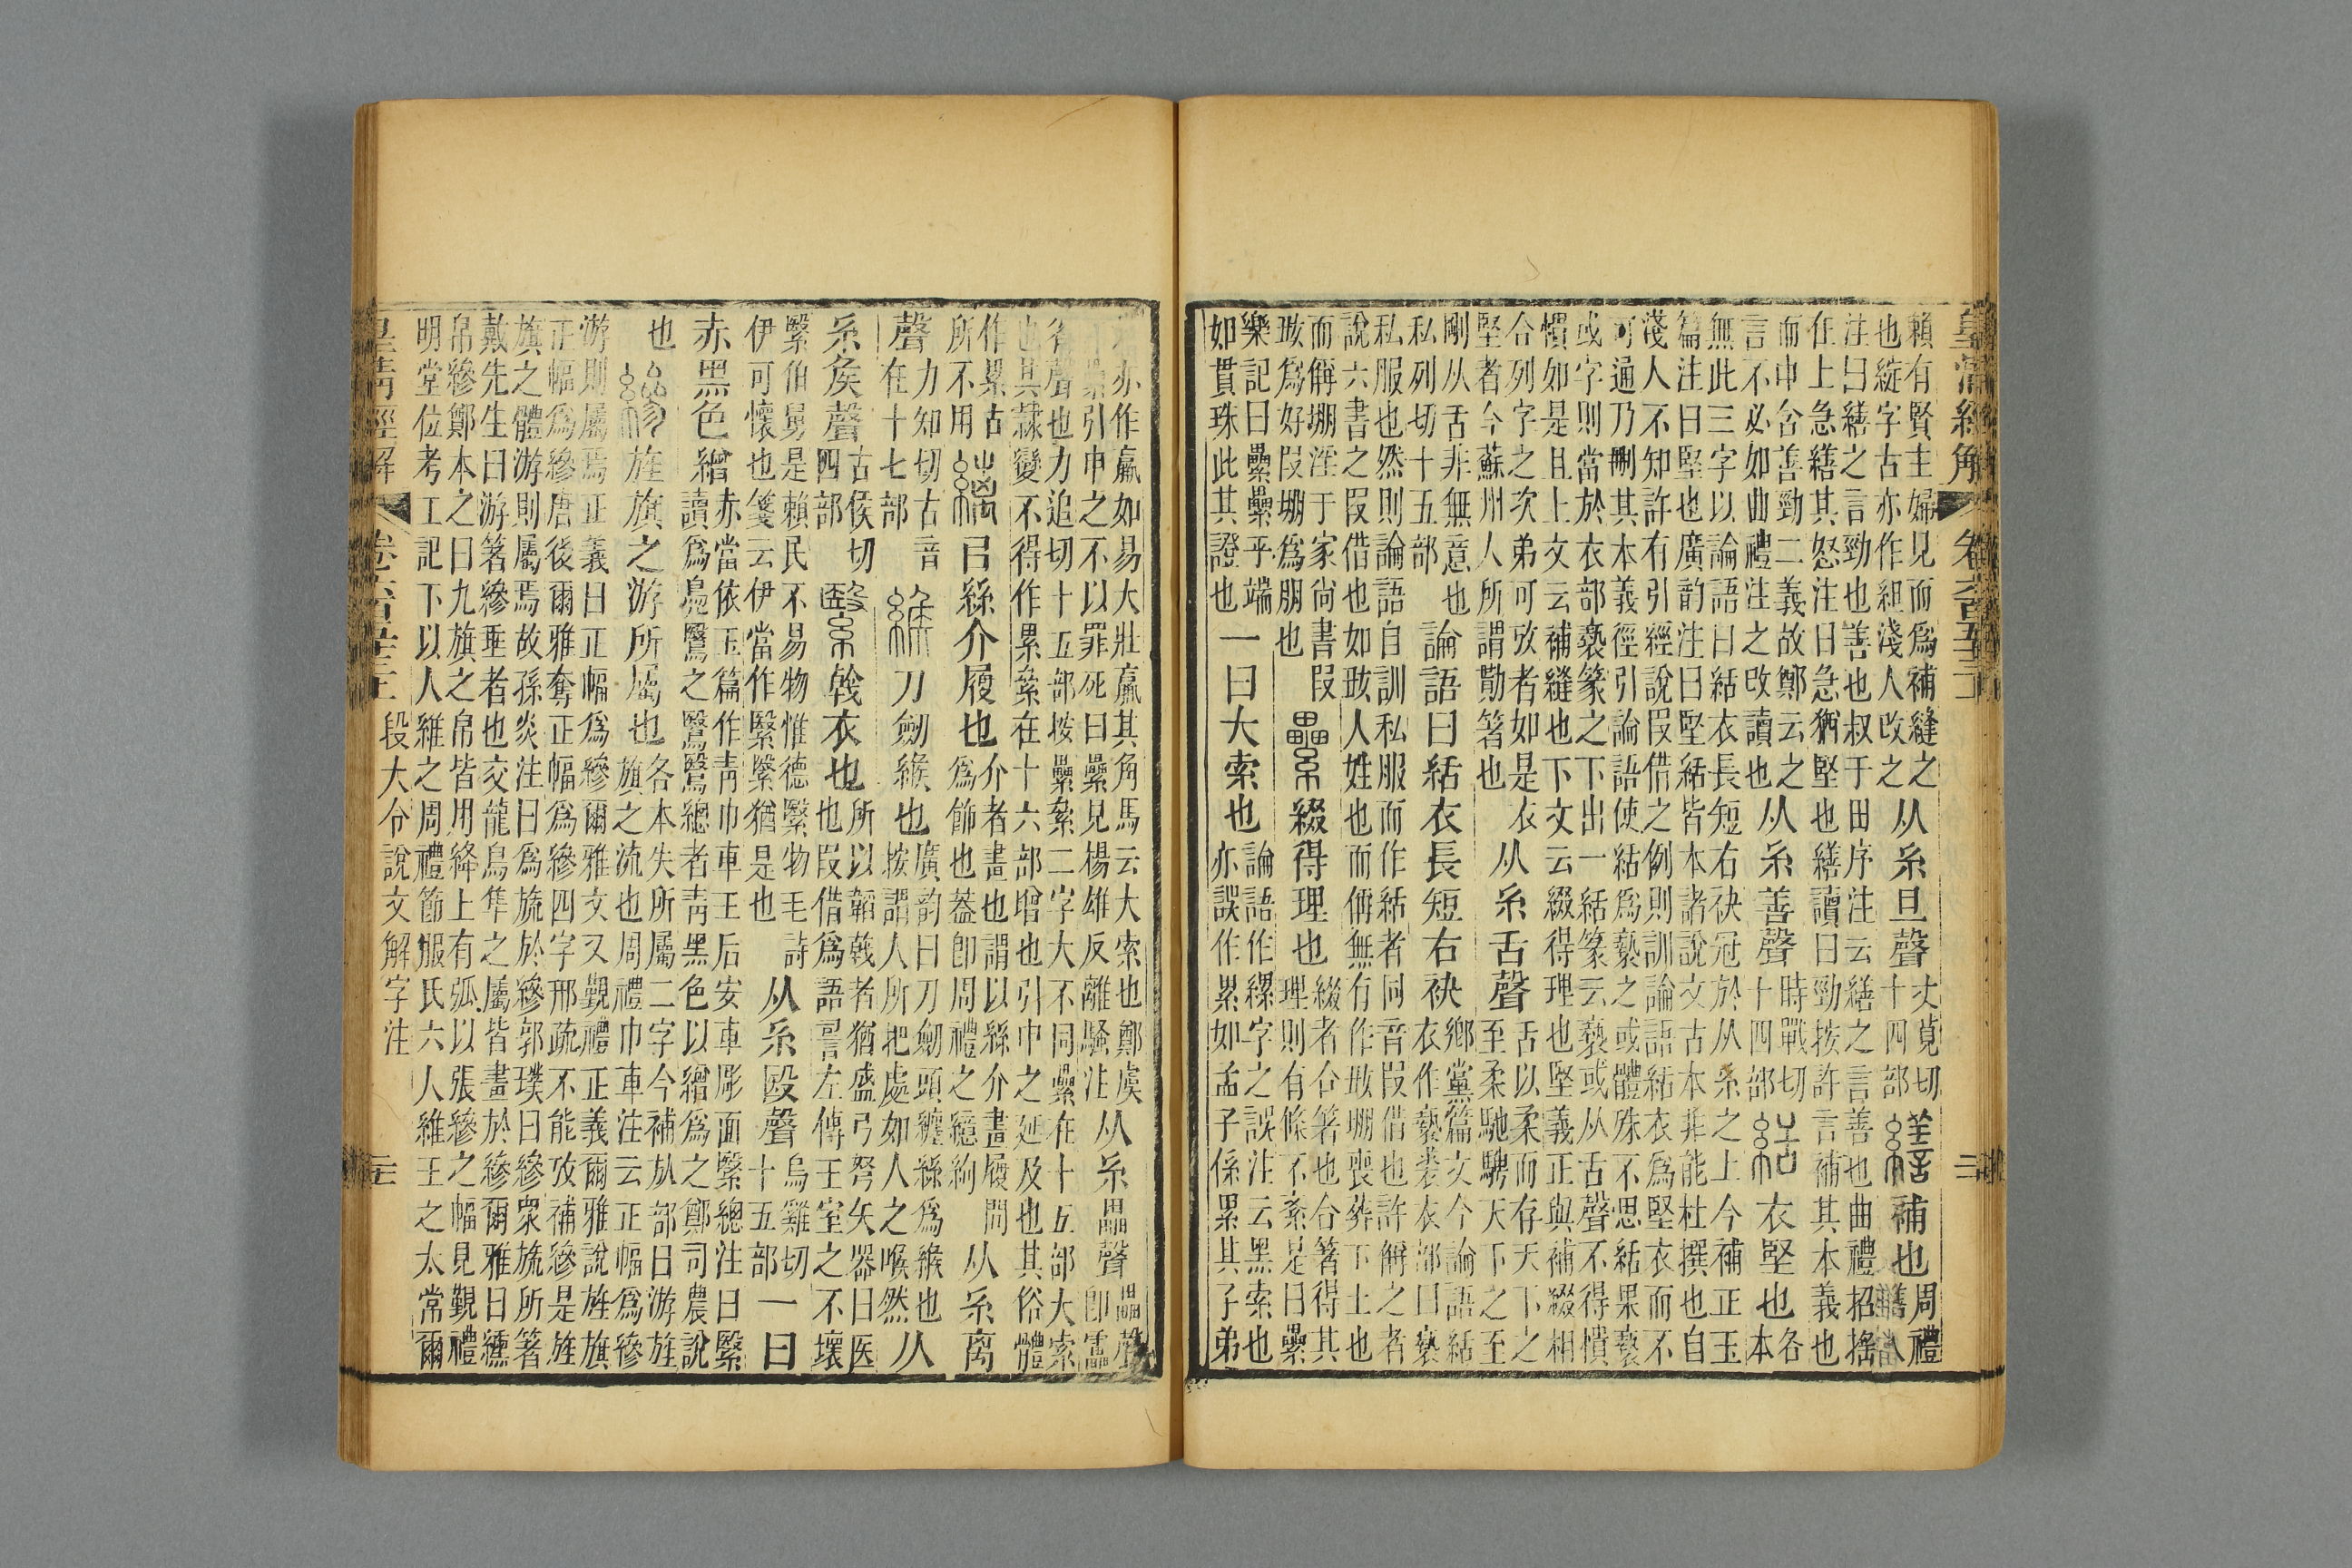 皇清經解
賴有賢主婦見而爲補縫之
也綻字古亦作組淺人改之
从糸旦聲
丈莧切
十四部
繕補也
周禮
繕人
注曰繕之言勁也善也叔于田序注云繕之言善也曲禮招搖
在上急繕其怒注曰急猶堅也繕讀曰勁按許言補其本義也
而申合善勁二義故鄭云之
言不必如曲禮注之改讀也
从糸善聲
時戰切
十四部
絬衣堅也
各
本
無此三字以論語曰絬衣長短右袂冠於从糸之上今補正玉
篇注曰堅也廣韵注曰堅絬皆本諸說文古本非能杜撰也自
淺人不知許有引經說叚借之例則訓論語絬衣爲堅衣而不
可通乃刪其本義徑引論語使絬爲褻之或體殊不思絬果褻
或字則當於衣部褻篆之下出一絬篆云褻或从舌聲不得憒
慣如是且上文云補縫也下文云綴得理也堅義正與補綴相
合列字之次弟可攷者如是衣
堅者今蘇州人所謂勩箸也
从糸舌聲
舌以柔而存天下之
至柔馳騁天下之至
剛从舌非無意也
私列切十五部
論語曰絬衣長短右袂
鄉黨篇文今論語絬
衣作褻裘衣部曰褻
私服也然則論語自訓私服而作絬者同音叚借也許解之者
說六書之叚借也如𡚽人姓也而偁無有作𡚽堋喪葬下土也
而偁堋淫于家尙書叚
𡚽爲好叚堋爲朋也
纍綴得理也
綴者合箸也合箸得其
理則有條不紊是曰纍
樂記曰纍纍乎端
如貫珠此其證也
一曰大索也
論語作縲字之誤注云黑索也
亦誤作累如孟子係累其子弟
亦作羸如易大壯羸其角馬云大索也鄭虞
引申之不以罪死曰纍見楊雄反離騷注
从糸畾聲
畾聲
卽靁
省聲也力追切十五部按纍絫二字大不同纍在十五部大索
也其隸變不得作累絫在十六部增也引申之延及也其俗體
作累古
所不用
縭㠯絲介履也
介者畫也謂以絲介畫履間
爲飾也葢卽周禮之繶絇
从糸离
聲
力知切古音
在十七部
緱刀劎緱也
廣韵曰刀劎頭纏絲爲緱也
按謂人所把處如人之喉然
从
糸矦聲
古侯切
四部
繄㦻衣也
所以韜㦻者猶盛弓弩矢器曰医
也叚借爲語䛐左傳王室之不壞
繄伯舅是賴民不易物惟德繄物毛詩
伊可懷也箋云伊當作繄繄猶是也
从糸殹聲
烏雞切
十五部
一曰
赤黑色繒
赤當依玉篇作靑巾車王后安車彫面繄總注曰繄
讀爲鳧鷖之鷖鷖總者靑黑色以繒爲之鄭司農說
也
縿旌旗之游所屬也
各本失所屬二字今補㫃部曰游旌
旗之流也周禮巾車注云正幅爲縿
游則屬焉正義曰正幅爲縿爾雅文又覲禮正義爾雅說旌旗
正幅爲縿唐後爾雅奪正幅爲縿四字邢疏不能攷補縿是旌
旗之體游則屬焉故孫炎注曰爲旒於縿郭璞曰縿衆旒所箸
戴先生曰游箸縿垂者也交龍鳥隼之屬皆畫於縿爾雅曰纁
帛縿鄭本之曰九旗之帛皆用絳上有弧以張縿之幅見覲禮
明堂位考工記下以人維之周禮節服氏六人維王之太常爾
皇清經解 段大令說文解字注